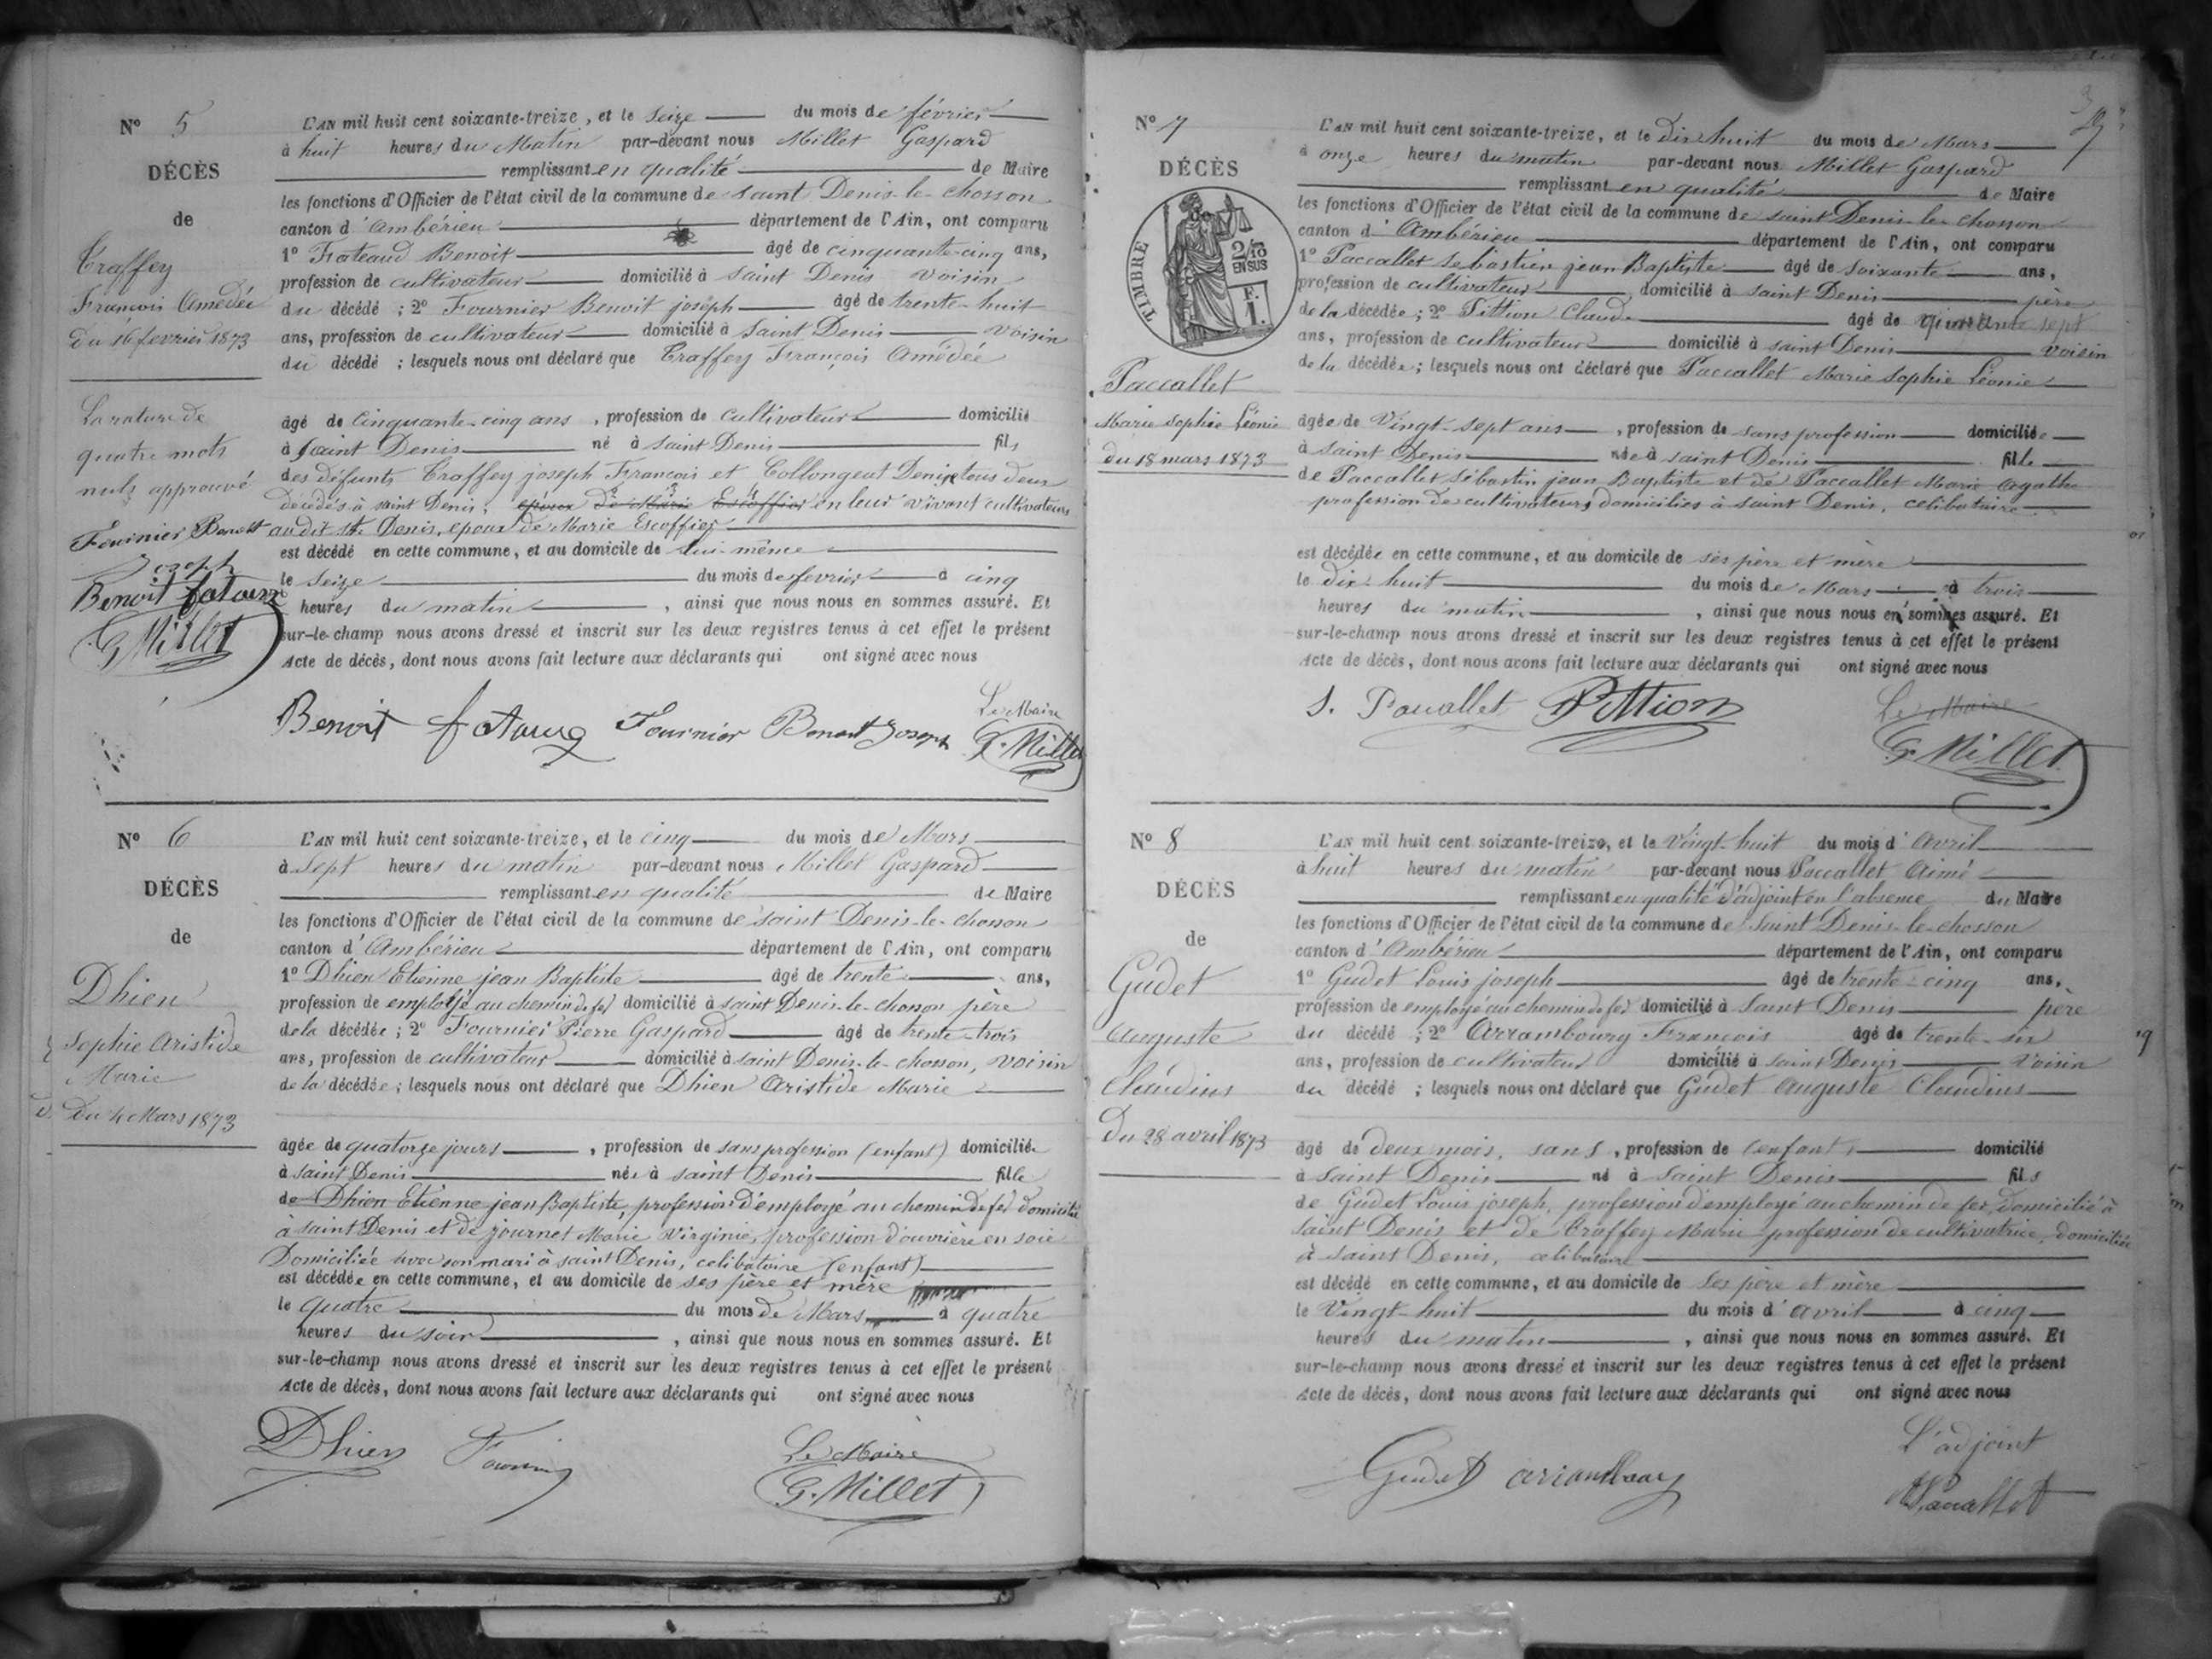 N° 5
DÉCÈS
de
Traffey
François Amédée
du 16 fevrier 1873
La rature de
quatre mots
nuls approuvé
Fournier Benoit
Joseph
Benoit
G. Millet
L'AN mil huit cent soixante-treize, et le seize du mois de février
à huit heures du Matin par-devant nous Millet Gaspard
remplissant en qualité de Maire
les fonctions d'Officier de l'état civil de la commune de saint Denis-le-chosson
canton d'Ambérieu département de l'Ain, ont comparu
1° Benoit âgé de cinquante-cinq ans,
profession de cultivateur domicilié à saint Denis voisin
du décédé ; 2° Fournier Benoit joseph âgé de trente-huit
ans, profession de cultivateur domicilié à saint Denis voisin
du décédé ; lesquels nous ont déclaré que Traffey François Amédée
âgé de cinquante-cinq ans, profession de cultivateur domicilié
à saint Denis né à saint Denis fils
des défunts Traffey joseph François et Collongeat tous deux
décédés à saint Denis, epoux de Marie Escoffier en leur vivant cultivateurs
audit St. Denis, epoux de Marie Escoffier
est décédé en cette commune, et au domicile de lui-même
le seize du mois de fevrier à cinq
heures du matin, ainsi que nous nous en sommes assuré. Et
sur-le-champ nous avons dressé et inscrit sur les deux registres tenus à cet effet le présent
Acte de décès, dont nous avons fait lecture aux déclarants qui ont signé avec nous
Le Maire
Benoit Fournier Benoit Joseph G. Millet
N° 6
DÉCÈS
de
Dhien
Sophie Aristide
Marie
Du 4 Mars 1873
L'AN mil huit cent soixante-treize, et le cinq du mois de Mars
à sept heures du matin par-devant nous Millet Gaspard
remplissant en qualité de Maire
les fonctions d'Officier de l'état civil de la commune de saint Denis-le-chosson
canton d'Ambérieu département de l'Ain, ont comparu
1° Dhien Etienne jean Baptiste âgé de trente ans,
profession de employé au chemin de fer domicilié à saint Denis-le-chosson père
de la décédée ; 2° Fournier Pierre Gaspard âgé de trente-trois
ans, profession de cultivateur domicilié à saint Denis-le-chosson, voisin
de la décédée ; lesquels nous ont déclaré que Dhien Aristide Marie
âgée de quatorze jours, profession de sans profession (enfant) domiciliée
à saint Denis née à saint Denis fille
de Dhien Etienne jean Baptiste, profession d'employé au chemin de fer domicilié
à saint Denis et de journet Marie Virginie, profession d'ouvrière en soie
Domiciliée avec son mari à saint Denis, celibataire (enfant)
est décédée en cette commune, et au domicile de ses père et mère
le quatre du mois de Mars à quatre
heures du soir, ainsi que nous nous en sommes assuré. Et
sur-le-champ nous avons dressé et inscrit sur les deux registres tenus à cet effet le présent
Acte de décès, dont nous avons fait lecture aux déclarants qui ont signé avec nous
Le Maire
Dhien G. Millet
N° 7
DÉCÈS
TIMBRE
2/10
EN SUS
F.
1.
Paccallet
Marie Sophie Léonie
du 18 mars 1873
L'AN mil huit cent soixante-treize, et le dix huit du mois de Mars
à onze heures du matin par-devant nous Millet Gaspard
remplissant en qualité de Maire
les fonctions d'Officier de l'état civil de la commune de saint Denis-le-chosson
canton d'Ambérieu département de l'Ain, ont comparu
1° Paccallet sebastien jean Baptiste âgé de soixante ans,
profession de cultivateur domicilié à saint Denis père
de la décédée ; 2° Pittion Claude âgé de sept
ans, profession de cultivateur domicilié à saint Denis voisin
de la décédée ; lesquels nous ont déclaré que Paccallet Marie Sophie Léonie
âgée de vingt-sept ans, profession de sans profession domiciliée
à saint Denis née à saint Denis fille
de Paccallet sébastien jean Baptiste et de Paccallet Marie Agathe
profession de cultivateurs domiciliés à saint Denis, celibataire
est décédée en cette commune, et au domicile de ses père et mère
le dix huit du mois de Mars à trois
heures du matin, ainsi que nous nous en sommes assuré. Et
sur-le-champ nous avons dressé et inscrit sur les deux registres tenus à cet effet le présent
Acte de décès, dont nous avons fait lecture aux déclarants qui ont signé avec nous
Le Maire
S. Pacallet Pittion G. Millet
N° 8
DÉCÈS
de
Gudet
Auguste
Claudius
Du 28 avril 1873
L'AN mil huit cent soixante-treize, et le vingt-huit du mois d'avril
à huit heures du matin par-devant nous Paccallet Aimé
remplissant en qualité d'adjoint en l'absence du Maire
les fonctions d'Officier de l'état civil de la commune de saint Denis-le-chosson
canton d'Ambérieu département de l'Ain, ont comparu
1° Gudet Louis joseph âgé de trente-cinq ans,
profession de employé au chemin de fer domicilié à saint Denis père
du décédé ; 2° Arrambourg François âgé de trente-six
ans, profession de cultivateur domicilié à saint Denis voisin
du décédé ; lesquels nous ont déclaré que Gudet Auguste Claudius
âgé de deux mois, sans, profession de (enfant) domicilié
à saint Denis né à saint Denis fils
de Gudet Louis joseph, profession d'employé au chemin de fer, domicilié à
saint Denis et de Traffey Marie profession de cultivatrice, domiciliée
à saint Denis, celibataire
est décédé en cette commune, et au domicile de ses père et mère
le vingt-huit du mois d'avril à cinq
heures du matin, ainsi que nous nous en sommes assuré. Et
sur-le-champ nous avons dressé et inscrit sur les deux registres tenus à cet effet le présent
Acte de décès, dont nous avons fait lecture aux déclarants qui ont signé avec nous
L'adjoint
Gudet